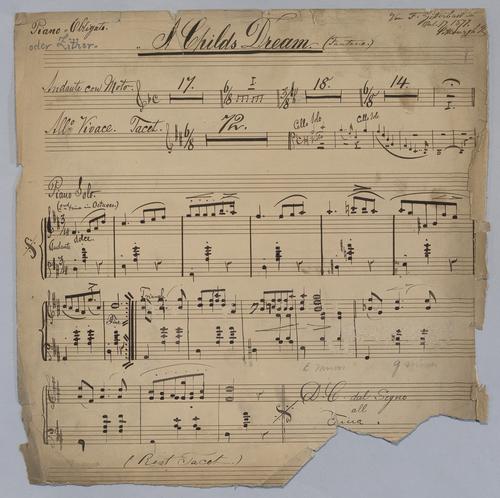 Piano - Obligato.
oder Zither.
A Childs Dream. (Fantasia.)
Andante con Moto. 17. I 18. 14. I
All? Vivace. Tacet. 72. Cello Solo Cello Solo
Piano Solo.
(2nd time in Octaves.)
Andante dolce
Fine
E minor g minor
D.C. dal Segno
all
Fine.
(Rest Tacet.)